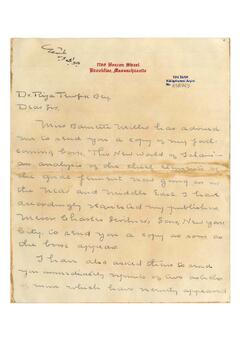 1768 Beacon Street
Brookline, Massachusetts
Dr. Riza Tewfik Bey
Dear Sir,
Miss Barnette Miller has advised
me to send you a copy of my forth-
coming book The New World of Islam -
an analysis of the chief elements of
the great ferment now going on in
the Near and Middle East. I have
accordingly requested my publishers
Messrs Charles Scribner's Sons, New York
City, to send you a copy as soon as
the book appears.
I have also asked them to send
you immediately copies of two articles
of mine which have recently appeared